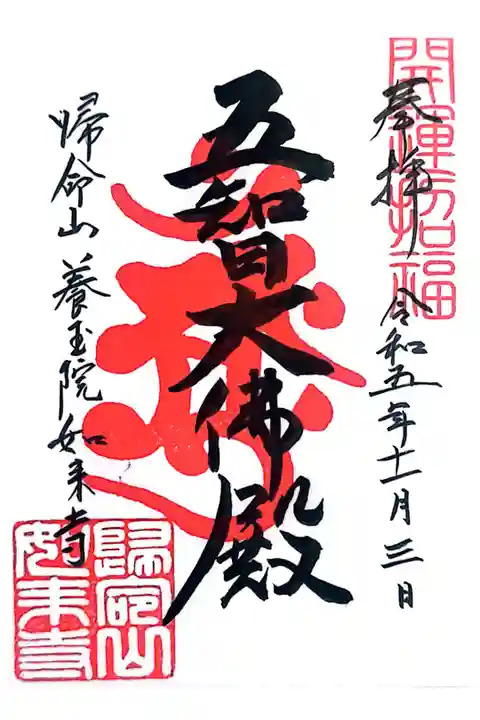 開運招福
奉拝 令和五年十一月三日
五智大佛殿
帰命山 養玉院如来寺
歸命山
如来寺